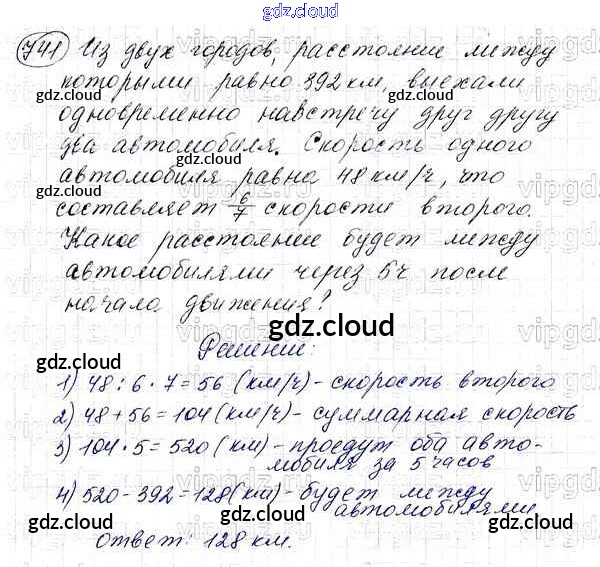 gdz.cloud
741 Из двух городов, расстояние между
которыми равно 392 км, выехали
одновременно навстречу друг другу
два автомобиля. Скорость одного
автомобиля равна 48 км/ч, что
составляет 6/7 скорости второго.
Какое расстояние будет между
автомобилями через 5 ч после
начала движения?
gdz.cloud
Решение:
1) 48 : 6 · 7 = 56 (км/ч) - скорость второго
2) 48 + 56 = 104 (км/ч) - суммарная скорость
3) 104 · 5 = 520 (км) - проедут оба авто-
мобиля за 5 часов
4) 520 - 392 = 128 (км) - будет между
автомобилями
ответ: 128 км.